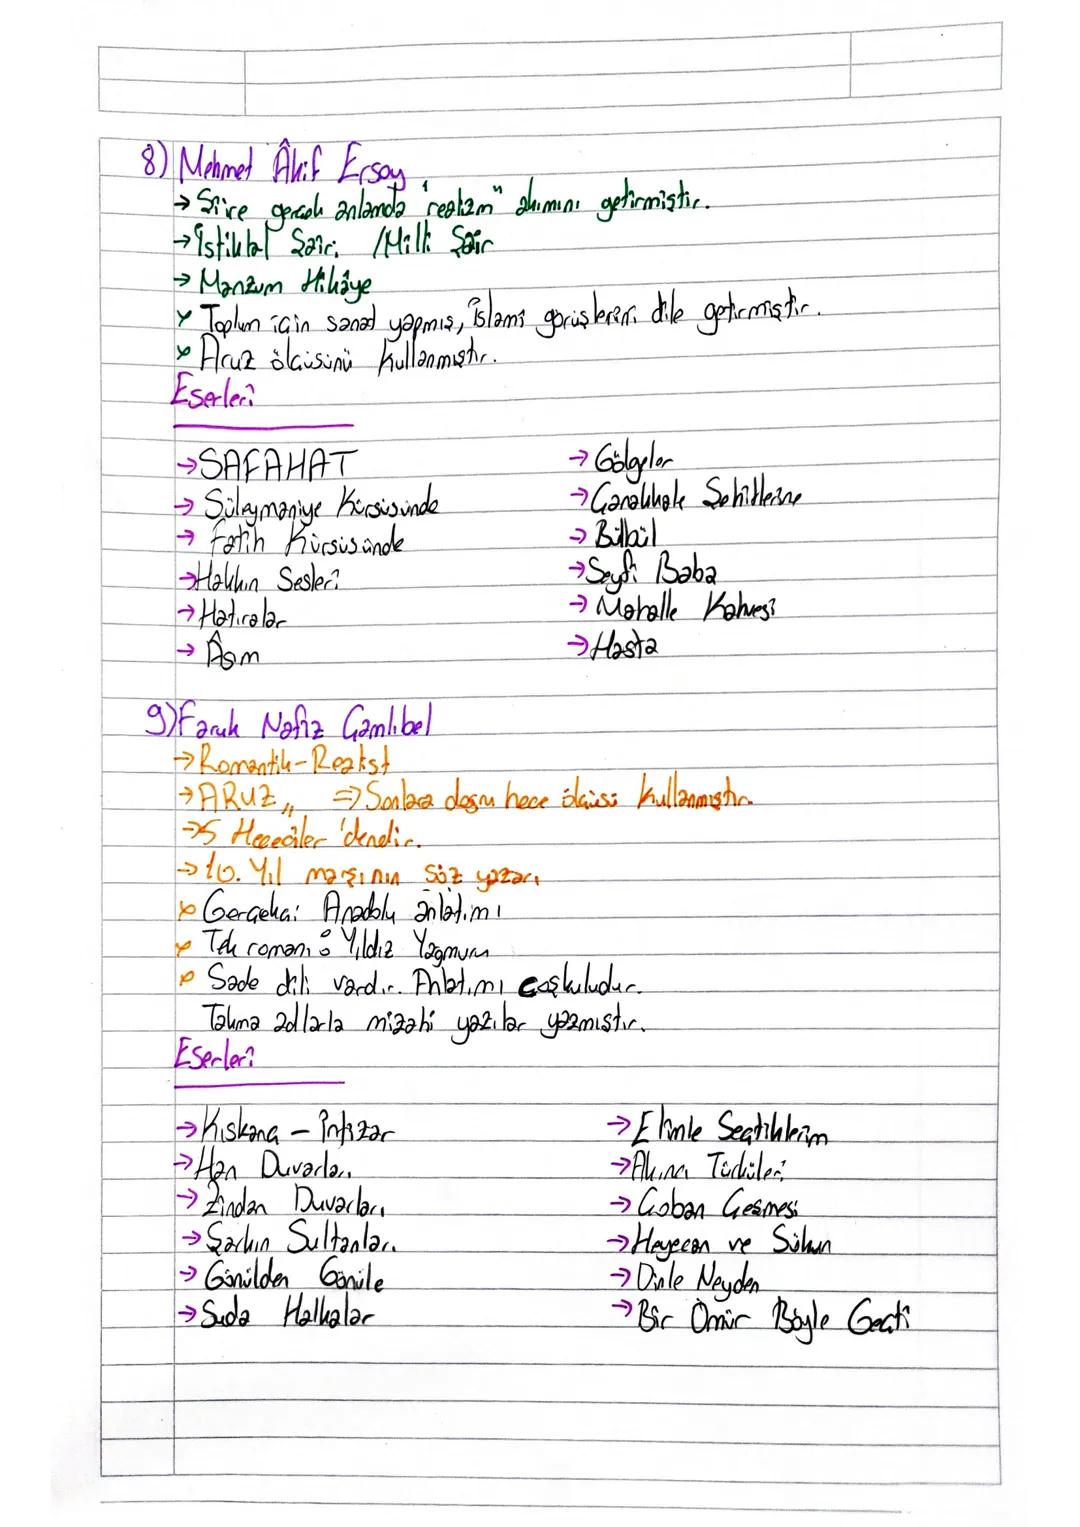 8) Mehmet Âkif Ersoy
→ Şiire gerçek anlamda "realizm" akımını getirmiştir.
→ İstiklal Şairi / Milli Şair
→ Manzum Hikâye
Toplum için sanat yapmış, İslami görüşlerini dile getirmiştir.
Aruz ölçüsünü kullanmıştır.
Eserleri
→ SAFAHAT
→ Süleymaniye Kürsüsünde
→ Fatih Kürsüsünde
→ Hakkın Sesleri
→ Hatıralar
→ Âsım
→ Gölgeler
→ Çanakkale Şehitlerine
→ Bülbül
→ Seyfi Baba
→ Mahalle Kahvesi
→ Hasta
9) Faruk Nafiz Çamlıbel
→ Romantik-Realist
→ ARUZ,, => Sonlara doğru hece ölçüsü kullanmıştır.
→ 5 Hececiler 'dendir.
→ 10. Yıl marşının söz yazarı
Gerçekçi Anadolu anlatımı
Tek romanı: Yıldız Yağmuru
Sade dili vardır. Anlatımı coşkuludur.
Takma adlarla mizahi yazılar yazmıştır.
Eserleri
→ Kıskanç - İntizar
→ Han Duvarları
→ Zindan Duvarları
→ Şarkın Sultanları
→ Gönülden Gönüle
→ Suda Halkalar
→ Elimle Seçtiklerim
→ Akıncı Türküleri
→ Çoban Çeşmesi
→ Heyecan ve Sükun
→ Dinle Neyden
→ Bir Ömür Böyle Geçti